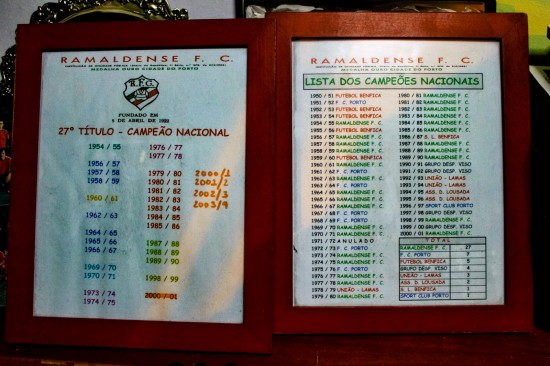 RAMALDENSE F. C.
MEDALHA OURO CIDADE DO PORTO
R.F.C.
FUNDADO EM
27º TÍTULO - CAMPEÃO NACIONAL
1954 / 55
1956 / 57
1957 / 58
1958 / 59
1960 / 61
1962 / 63
1964 / 65
1965 / 66
1966 / 67
1969 / 70
1970 / 71
1973 / 74
1974 / 75
1976 / 77
1977 / 78
1979 / 80
1980 / 81
1981 / 82
1982 / 83
1983 / 84
1984 / 85
1985 / 86
1987 / 88
1988 / 89
1989 / 90
1998 / 99
2000 / 01
2000/1
2002/2
2002/3
2003/4
RAMALDENSE F. C.
MEDALHA OURO CIDADE DO PORTO
LISTA DOS CAMPEÕES NACIONAIS
1950 / 51 FUTEBOL BENFICA
1951 / 52 F. C. PORTO
1952 / 53 FUTEBOL BENFICA
1953 / 54 FUTEBOL BENFICA
1954 / 55 RAMALDENSE F. C.
1955 / 56 FUTEBOL BENFICA
1956 / 57 RAMALDENSE F. C.
1957 / 58 RAMALDENSE F. C.
1958 / 59 RAMALDENSE F. C.
1959 / 60 FUTEBOL BENFICA
1960 / 61 RAMALDENSE F. C.
1961 / 62 F. C. PORTO
1962 / 63 RAMALDENSE F. C.
1963 / 64 F. C. PORTO
1964 / 65 RAMALDENSE F. C.
1965 / 66 RAMALDENSE F. C.
1966 / 67 RAMALDENSE F. C.
1967 / 68 F. C. PORTO
1968 / 69 F. C. PORTO
1969 / 70 RAMALDENSE F. C.
1970 / 71 RAMALDENSE F. C.
1971 / 72 ANULADO
1972 / 73 F. C. PORTO
1973 / 74 RAMALDENSE F. C.
1974 / 75 RAMALDENSE F. C.
1975 / 76 F. C. PORTO
1976 / 77 RAMALDENSE F. C.
1977 / 78 RAMALDENSE F. C.
1978 / 79 UNIÃO - LAMAS
1979 / 80 RAMALDENSE F. C.
1980 / 81 RAMALDENSE F. C.
1981 / 82 RAMALDENSE F. C.
1982 / 83 RAMALDENSE F. C.
1983 / 84 RAMALDENSE F. C.
1984 / 85 RAMALDENSE F. C.
1985 / 86 RAMALDENSE F. C.
1986 / 87 S. L. BENFICA
1987 / 88 RAMALDENSE F. C.
1988 / 89 RAMALDENSE F. C.
1989 / 90 RAMALDENSE F. C.
1990 / 91 GRUPO DESP. VISO
1991 / 92 GRUPO DESP. VISO
1992 / 93 UNIÃO - LAMAS
1993 / 94 UNIÃO - LAMAS
1994 / 95 ASS. D. LOUSADA
1995 / 96 ASS. D. LOUSADA
1996 / 97 SPORT CLUB PORTO
1997 / 98 GRUPO DESP. VISO
1998 / 99 RAMALDENSE F. C.
1999 / 00 GRUPO DESP. VISO
2000 / 01 RAMALDENSE F. C.
TOTAL
RAMALDENSE F. C. 27
F. C. PORTO 7
FUTEBOL BENFICA 5
GRUPO DESP. VISO 4
UNIÃO - LAMAS 3
ASS. D. LOUSADA 2
S. L. BENFICA 1
SPORT CLUB PORTO 1